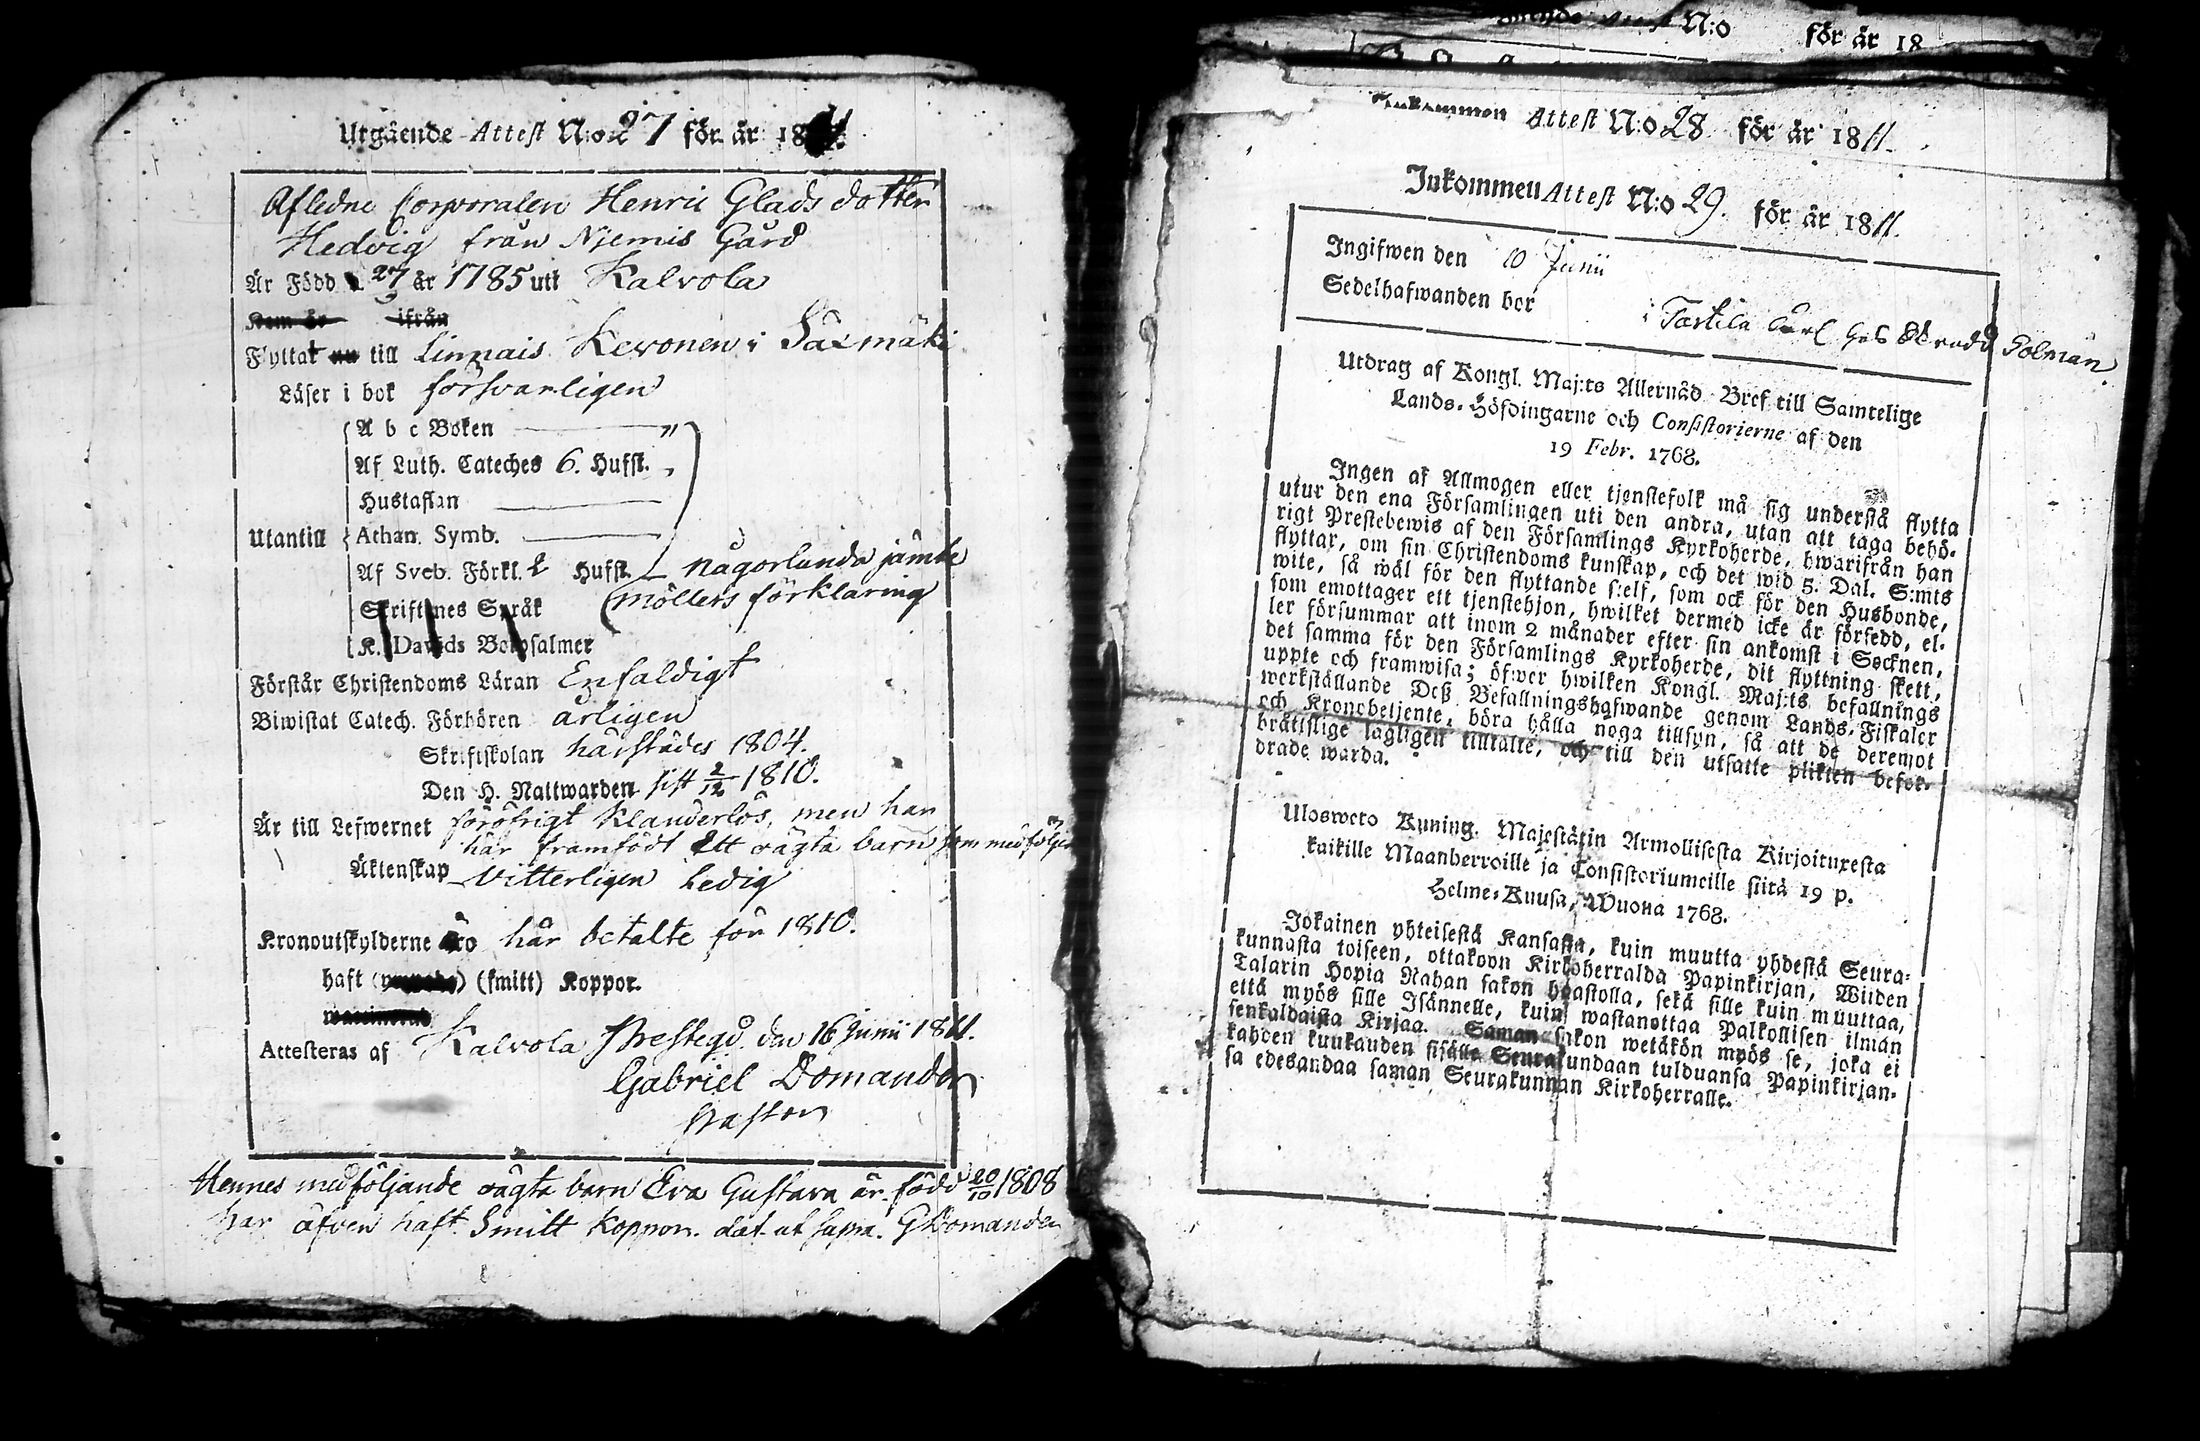 Utgående Attest N:o 27 för år 1811.
Afledne Corporalen Henric Glads dotter
Hedvig från Njemis Gård
Är Född 27 är 1785 utt Kalvola
Kom är ifrån
Flyttat nu till Linnais Kevonen i Säxmäki
Läser i bok försvarligen
A b c Boken — "
Af Luth. Cateches 6. Hufst.
Hustaflan
Utantill Athan. Symb.
Af Sveb. Förkl. 2 Hufst. någorlunda jämte
Skriftenes Språk möllers förklaring
K. Davids Botpsalmer
Förstår Christendoms Läran Enfaldigt
Biwistat Catech. Förhören årligen
Skriftskolan härstädes 1804.
Den H. Nattwarden sist 2/12 1810.
Är till Lefwernet föröfrigt klanderlös, men har
här framfödt ett oägta barn som medföljer
Äktenskap Vitterligen ledig
Kronoutskylderne äro här betalte för 1810.
haft (smitt) Koppor.
Attesteras af Kalvola Prestegd. den 16 Junii 1811.
Gabriel Domander
Pastor
Hennes medföljande oägta barn Eva Gustava är född 20/10 1808
har äfven haft Smitt koppor. dat. ut supra. G Domander
N:o för år 18
Inkommen Attest N:o 28 för år 1811.
Inkommen Attest N:o 29. för år 1811.
Ingifwen den 10 Junii
Sedelhafwanden bor i Tarttila Carl Solman
Utdrag af Kongl. Maj:ts Allernåd. Bref till Samtelige
Lands-Höfdingarne och Consistorierne af den
19 Febr. 1768.
Ingen af Allmogen eller tjenstefolk må sig understå flytta
utur den ena Församlingen uti den andra, utan att taga behö-
rigt Prestebewis af den Församlings Kyrkoherde, hwarifrån han
flyttar, om sin Christendoms kunskap, och det wid 5. Dal. S:mts
wite, så wäl för den flyttande sjelf, som ock för den Husbonde,
som emottager ett tjenstehjon, hwilket dermed icke är försedd, el-
ler försummar att inom 2 månader efter sin ankomst i Socknen,
det samma för den Församlings Kyrkoherde, dit flyttning skett,
uppte och framwisa; öfwer hwilken Kongl. Maj:ts befallnings
werkställande Deß Befallningshafwande genom Lands-Fiskaler
och Kronobetjente, böra hålla noga tillsyn, så att de deremot
bråttslige lagligen tilltalte, och till den utsatte plikten befor-
drade warda.
Ulosweto Kuning. Majestätin Armollisesta Kirjoituxesta
kaikille Maanherroille ja Consistoriumeille siitä 19 p.
Helme-Kuusa, Wuona 1768.
Jokainen yhteisestä Kansasta, kuin muutta yhdestä Seura-
kunnasta toiseen, ottakoon Kirkoherralda Papinkirjan, Wiiden
Talarin Hopia Rahan sakon haastolla, sekä sille kuin muuttaa,
että myös sille Isännelle, kuin wastanottaa Palkollisen ilman
senkaldaista Kirjaa. Saman sakon wetäkön myös se, joka ei
kahden kuukauden sisälle Seurakundaan tulduansa Papinkirjan-
sa edesandaa saman Seurakunnan Kirkoherralle.